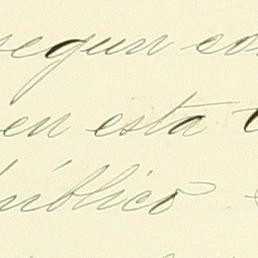 segun con
en esta
público